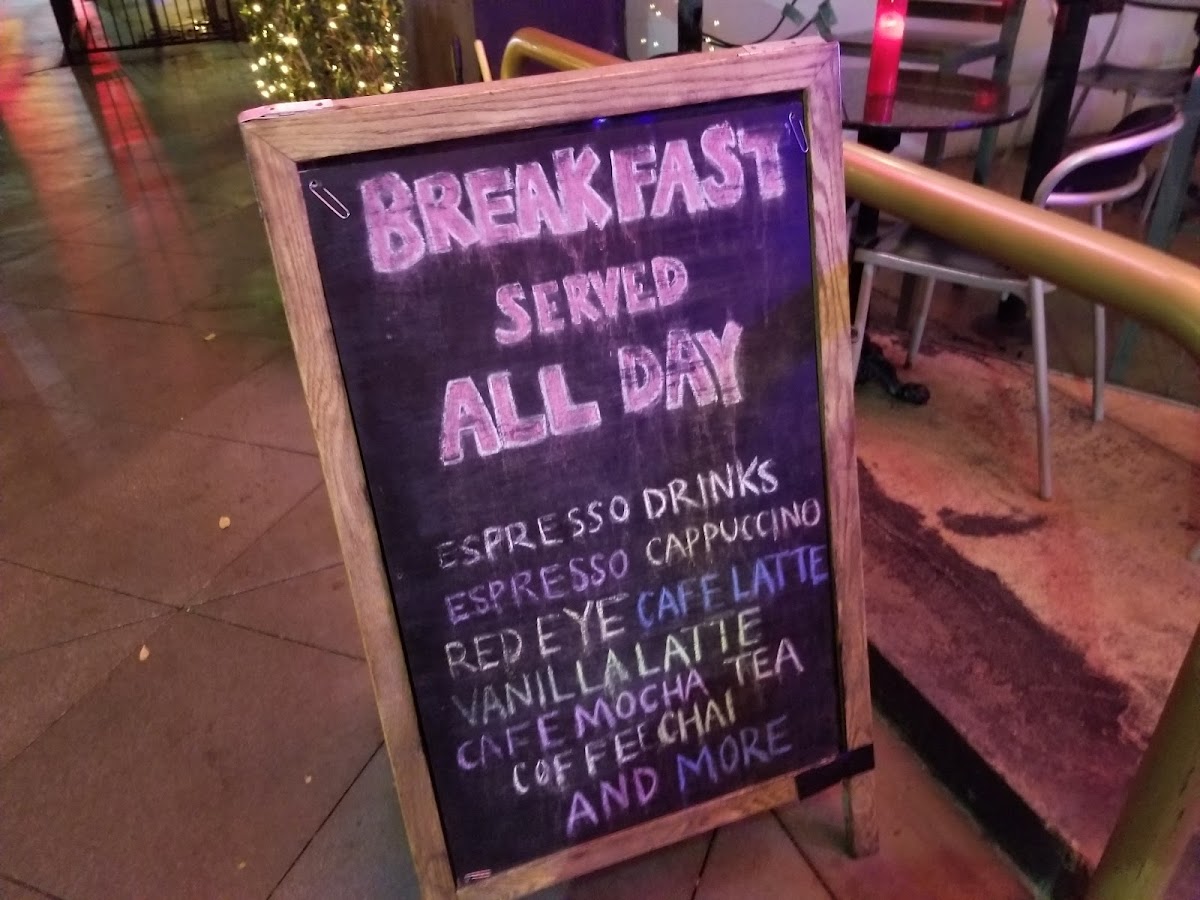 BREAKFAST
SERVED
ALL DAY
ESPRESSO DRINKS
ESPRESSO CAPPUCCINO
RED EYE CAFE LATTE
VANILLA LATTE
CAFE MOCHA TEA
COFFEE CHAI
AND MORE